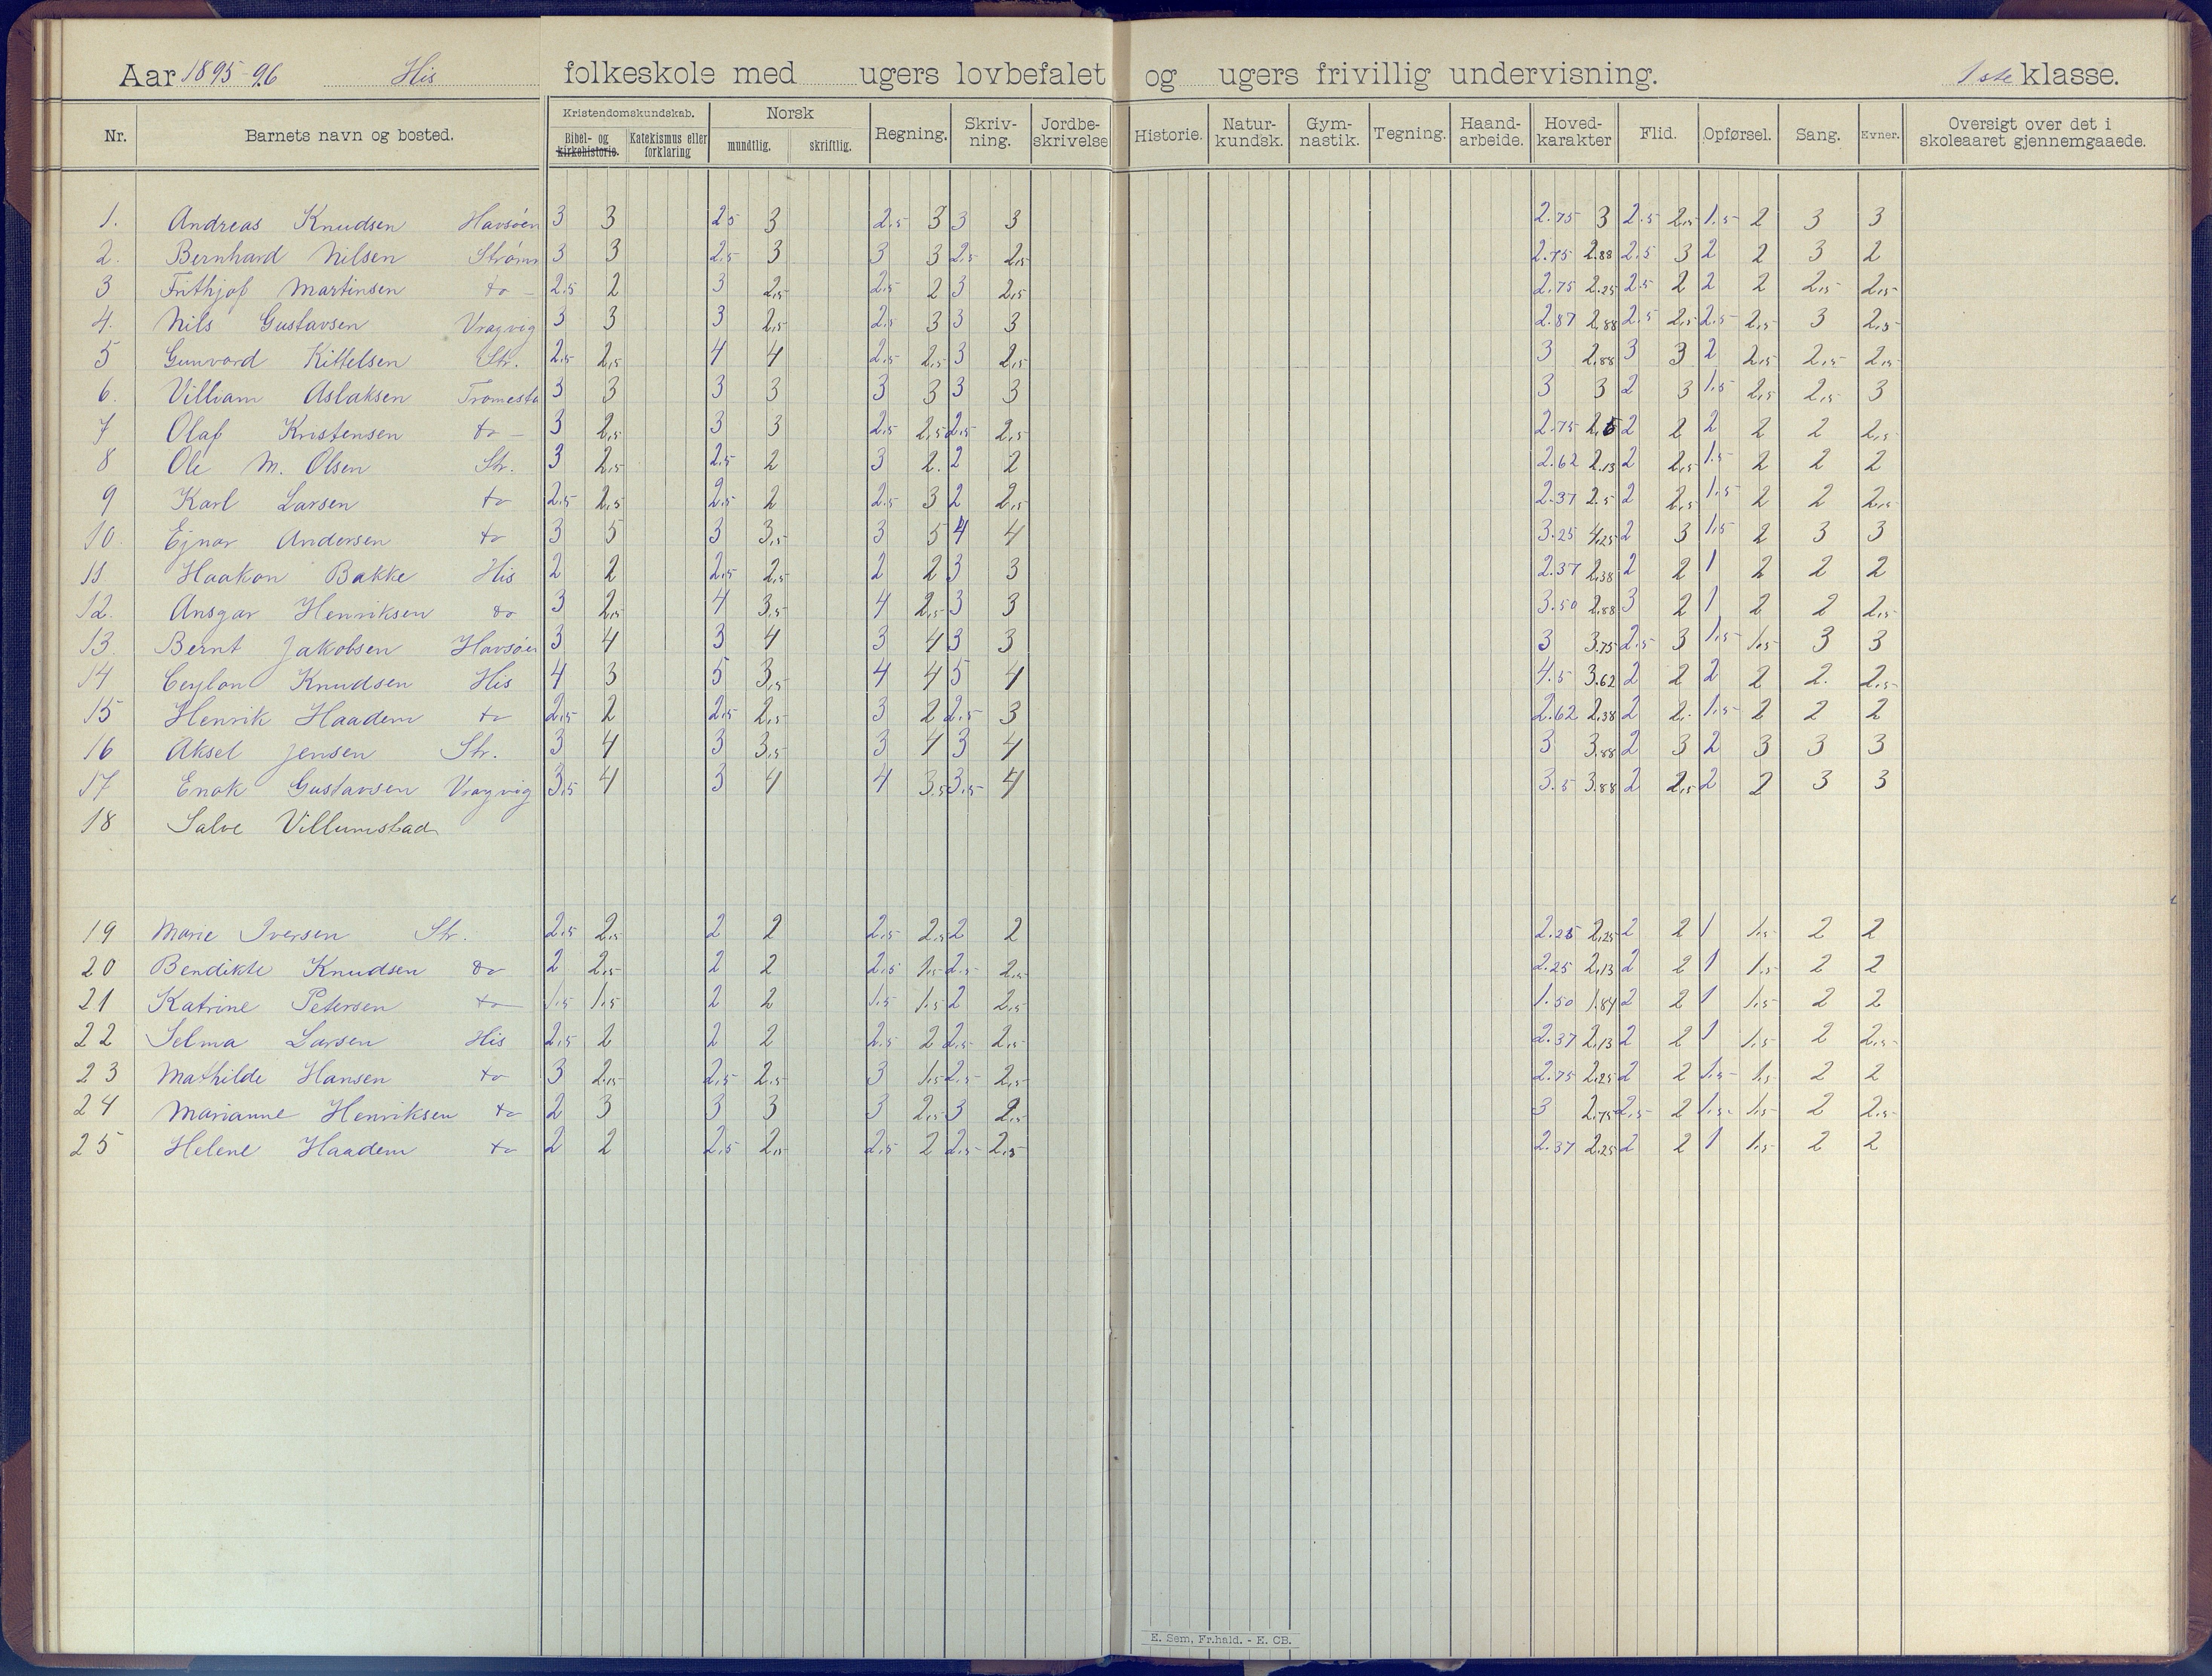 Aar 1895-96 His folkeskole med ugers lovbefalet og ugers frivillig undervisning. 1ste klasse.
Nr. Barnets navn og bosted. Kristendomskundskab. Bibel- og kirkehistorie. Katekismus eller forklaring Norsk mundtlig. skriftlig. Regning. Skriv-ning. Jordbe-skrivelse Historie. Natur-kundsk. Gym-nastik. Tegning. Haand-arbeide. Hoved-karakter Flid. Opførsel. Sang. Evner. Oversigt over det i skoleaaret gjennemgaaede.
1. Andreas Knudsen Havsøen 3 3 2.5 3 2.5 3 3 3 2.75 3 2.5 2,5 1.5 2 3 3
2. Bernhard Nilsen Strømm 3 3 2.5 3 3 3 2.5 2,5 2.75 2.88 2.5 3 2 2 3 2
3 Frithjof Martinsen do 2.5 2 3 2,5 2.5 2 3 2,5 2.75 2.25 2.5 2 2 2 2,5 2,5
4. Nils Gustavsen Vragvig 3 3 3 2,5 2.5 3 3 3 2.87 2,88 2.5 2,5 2.5 2,5 3 2,5
5 Gunvard Kittelsen Str. 2.5 2,5 4 4 2.5 2,5 3 2,5 3 2,88 3 3 2 2,5 2,5 2,5
6. Villiam Aslaksen Tromesta 3 3 3 3 3 3 3 3 3 3 2 3 1.5 2,5 2,5 3
7 Olaf Kristensen do 3 2,5 3 3 2.5 2,5 2.5 2,5 2.75 2,6 2 2 2 2 2 2,5
8 Ole M. Olsen Str. 3 2,5 2.5 2 3 2. 2 2 2.62 2.13 2 2,5 1.5 2 2 2
9 Karl Larsen do 2.5 2,5 2.5 2 2.5 3 2 2,5 2.37 2.5 2 2,5 1.5 2 2 2,5
10. Ejnar Andersen do 3 5 3 3,5 3 5 4 4 3.25 4,25 2 3 1.5 2 3 3
11 Haakon Bakke His 2 2 2.5 2,5 2 2 3 3 2.37 2,38 2 2 1 2 2 2
12. Ansgar Henriksen do 3 2,5 4 3,5 4 2,5 3 3 3.50 2,88 3 2 1 2 2 2,5
13. Bernt Jakobsen Havsøen 3 4 3 4 3 4 3 3 3 3.75 2.5 3 1.5 1,5 3 3
14 Ceylon Knudsen His 4 3 5 3,5 4 4 5 4 4.5 3.62 2 2 2 2 2. 2,5
15 Henrik Haadem do 2.5 2 2.5 2,5 3 2 2.5 3 2.62 2,38 2 2. 1.5 2 2 2
16 Aksel Jensen Str. 3 4 3 3,5 3 4 3 4 3 3,88 2 3 2 3 3 3
17 Enok Gustavsen Vragvig 3.5 4 3 4 4 3.5 3.5 4 3.5 3.88 2 2,5 2 2 3 3
18 Salve Villumstad
19 Marie Iversen Str. 2.5 2,5 2 2 2.5 2,5 2 2 2.25 2,25 2 2 1 1,5 2 2
20 Bendikte Knudsen do 2 2,5 2 2 2.5 1,5 2.5 2,5 2.25 2,13 2 2 1 1,5 2 2
21 Katrine Petersen do 1.5 1,5 2 2 1.5 1,5 2 2,5 1.50 1,84 2 2 1 1,5 2 2
22 Selma Larsen His 2.5 2 2 2 2.5 2 2.5 2,5 2.37 2,13 2 2 1 1,5 2 2,5
23 Mathilde Hansen do 3 2,5 2.5 2,5 3 1,5 2.5 2,5 2.75 2,25 2 2 1.5 1,5 2 2
24 Marianne Henriksen do 2 3 3 3 3 2,5 3 2,5 3 2,75 2.5 2 1.5 1,5 2 2,5
25 Helene Haadem do 2 2 2.5 2,5 2.5 2 2.5 2,5 2.37 2,25 2 2 1 1,5 2 2
E. Sem, Fr.hald. - E. CB.